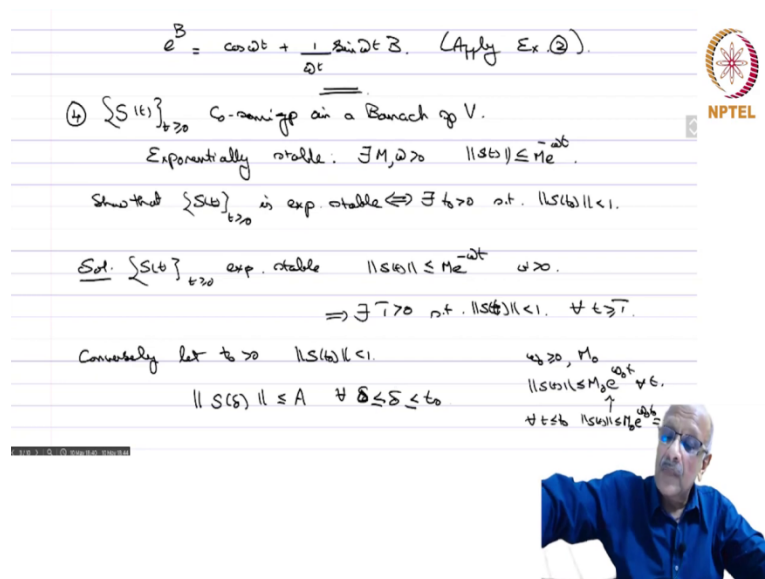 e^B = cos ωt + 1/ωt sin ωt B. (Apply Ex. ②).
NPTEL
④ {S(t)}_{t≥0} C₀-semigp on a Banach sp V.
Exponentially stable: ∃ M, ω>0 ||S(t)|| ≤ Me^{-ωt}.
Show that {S(t)}_{t≥0} is exp. stable ⟺ ∃ t₀>0 s.t. ||S(t₀)||<1.
Sol. {S(t)}_{t≥0} exp. stable ||S(t)|| ≤ Me^{-ωt} ω>0.
⟹ ∃ T>0 s.t. ||S(t)||<1. ∀ t≥T.
Conversely let t₀>0 ||S(t₀)||<1.
ω₀≥0, M₀
||S(t)|| ≤ M₀e^{ω₀t} ∀ t.
||S(δ)|| ≤ A ∀ 0≤δ≤t₀
↑
∀ t≤t₀ ||S(t)|| ≤ M₀e^{ω₀t₀} =